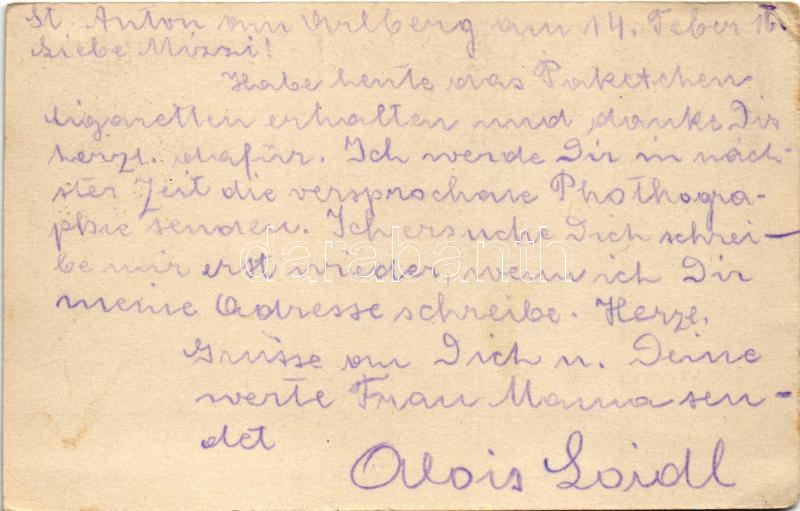 St. Anton am Arlberg am 14. Feber 16.
Liebe Mizzi!
Habe heute das Paketchen
Zigaretten erhalten und danke Dir
herzl. dafür. Ich werde Dir in näch-
ster Zeit die versprochene Photogra-
phie senden. Ich ersuche Dich schrei-
be mir erst wieder, wenn ich Dir
meine Adresse schreibe. Herzl.
Grüsse an Dich u. Deine
werte Frau Mama sen-
det
Alois Loidl
darabanth